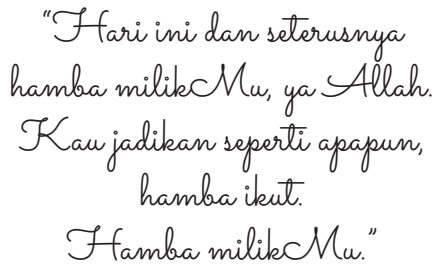 “Hari ini dan seterusnya
hamba milikMu, ya Allah.
Kau jadikan seperti apapun,
hamba ikut.
Hamba milikMu.”